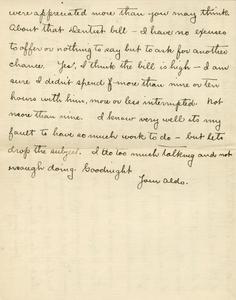 were appreciated more than you may think.
About that Dentist bill - I have no excuses
to offer or nothing to say but to ask for another
chance. Yes, I think the bill is high - I am
sure I didn't spend more than nine or ten
hours with him, more or less interrupted. Not
more than nine. I know very well its my
fault to have so much work to do - but lets
drop the subject. I do too much talking and not
enough doing. Goodnight
Aldo.